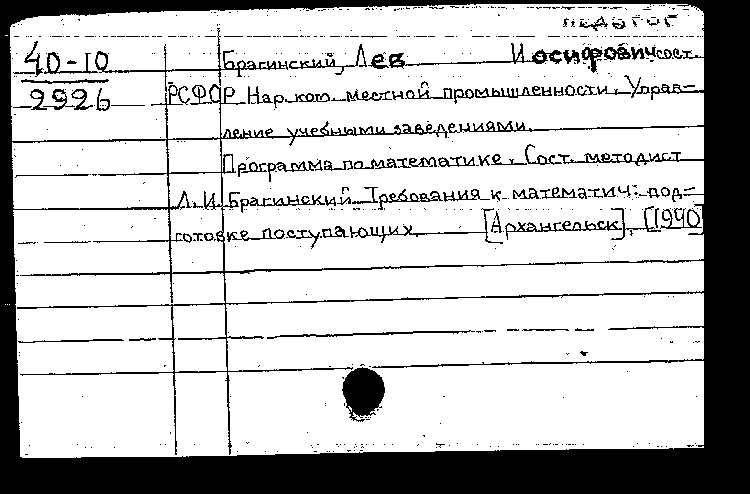 педагог
40-10
2926
Брагинский, Лев Иосифович сост.
РСФСР Нар. ком. местной промышленности. Управ-
ление учебными заведениями.
Программа по математике. Сост. методист
Л. И. Брагинский. Требования к математич. под-
готовке поступающих. [Архангельск], [1940]